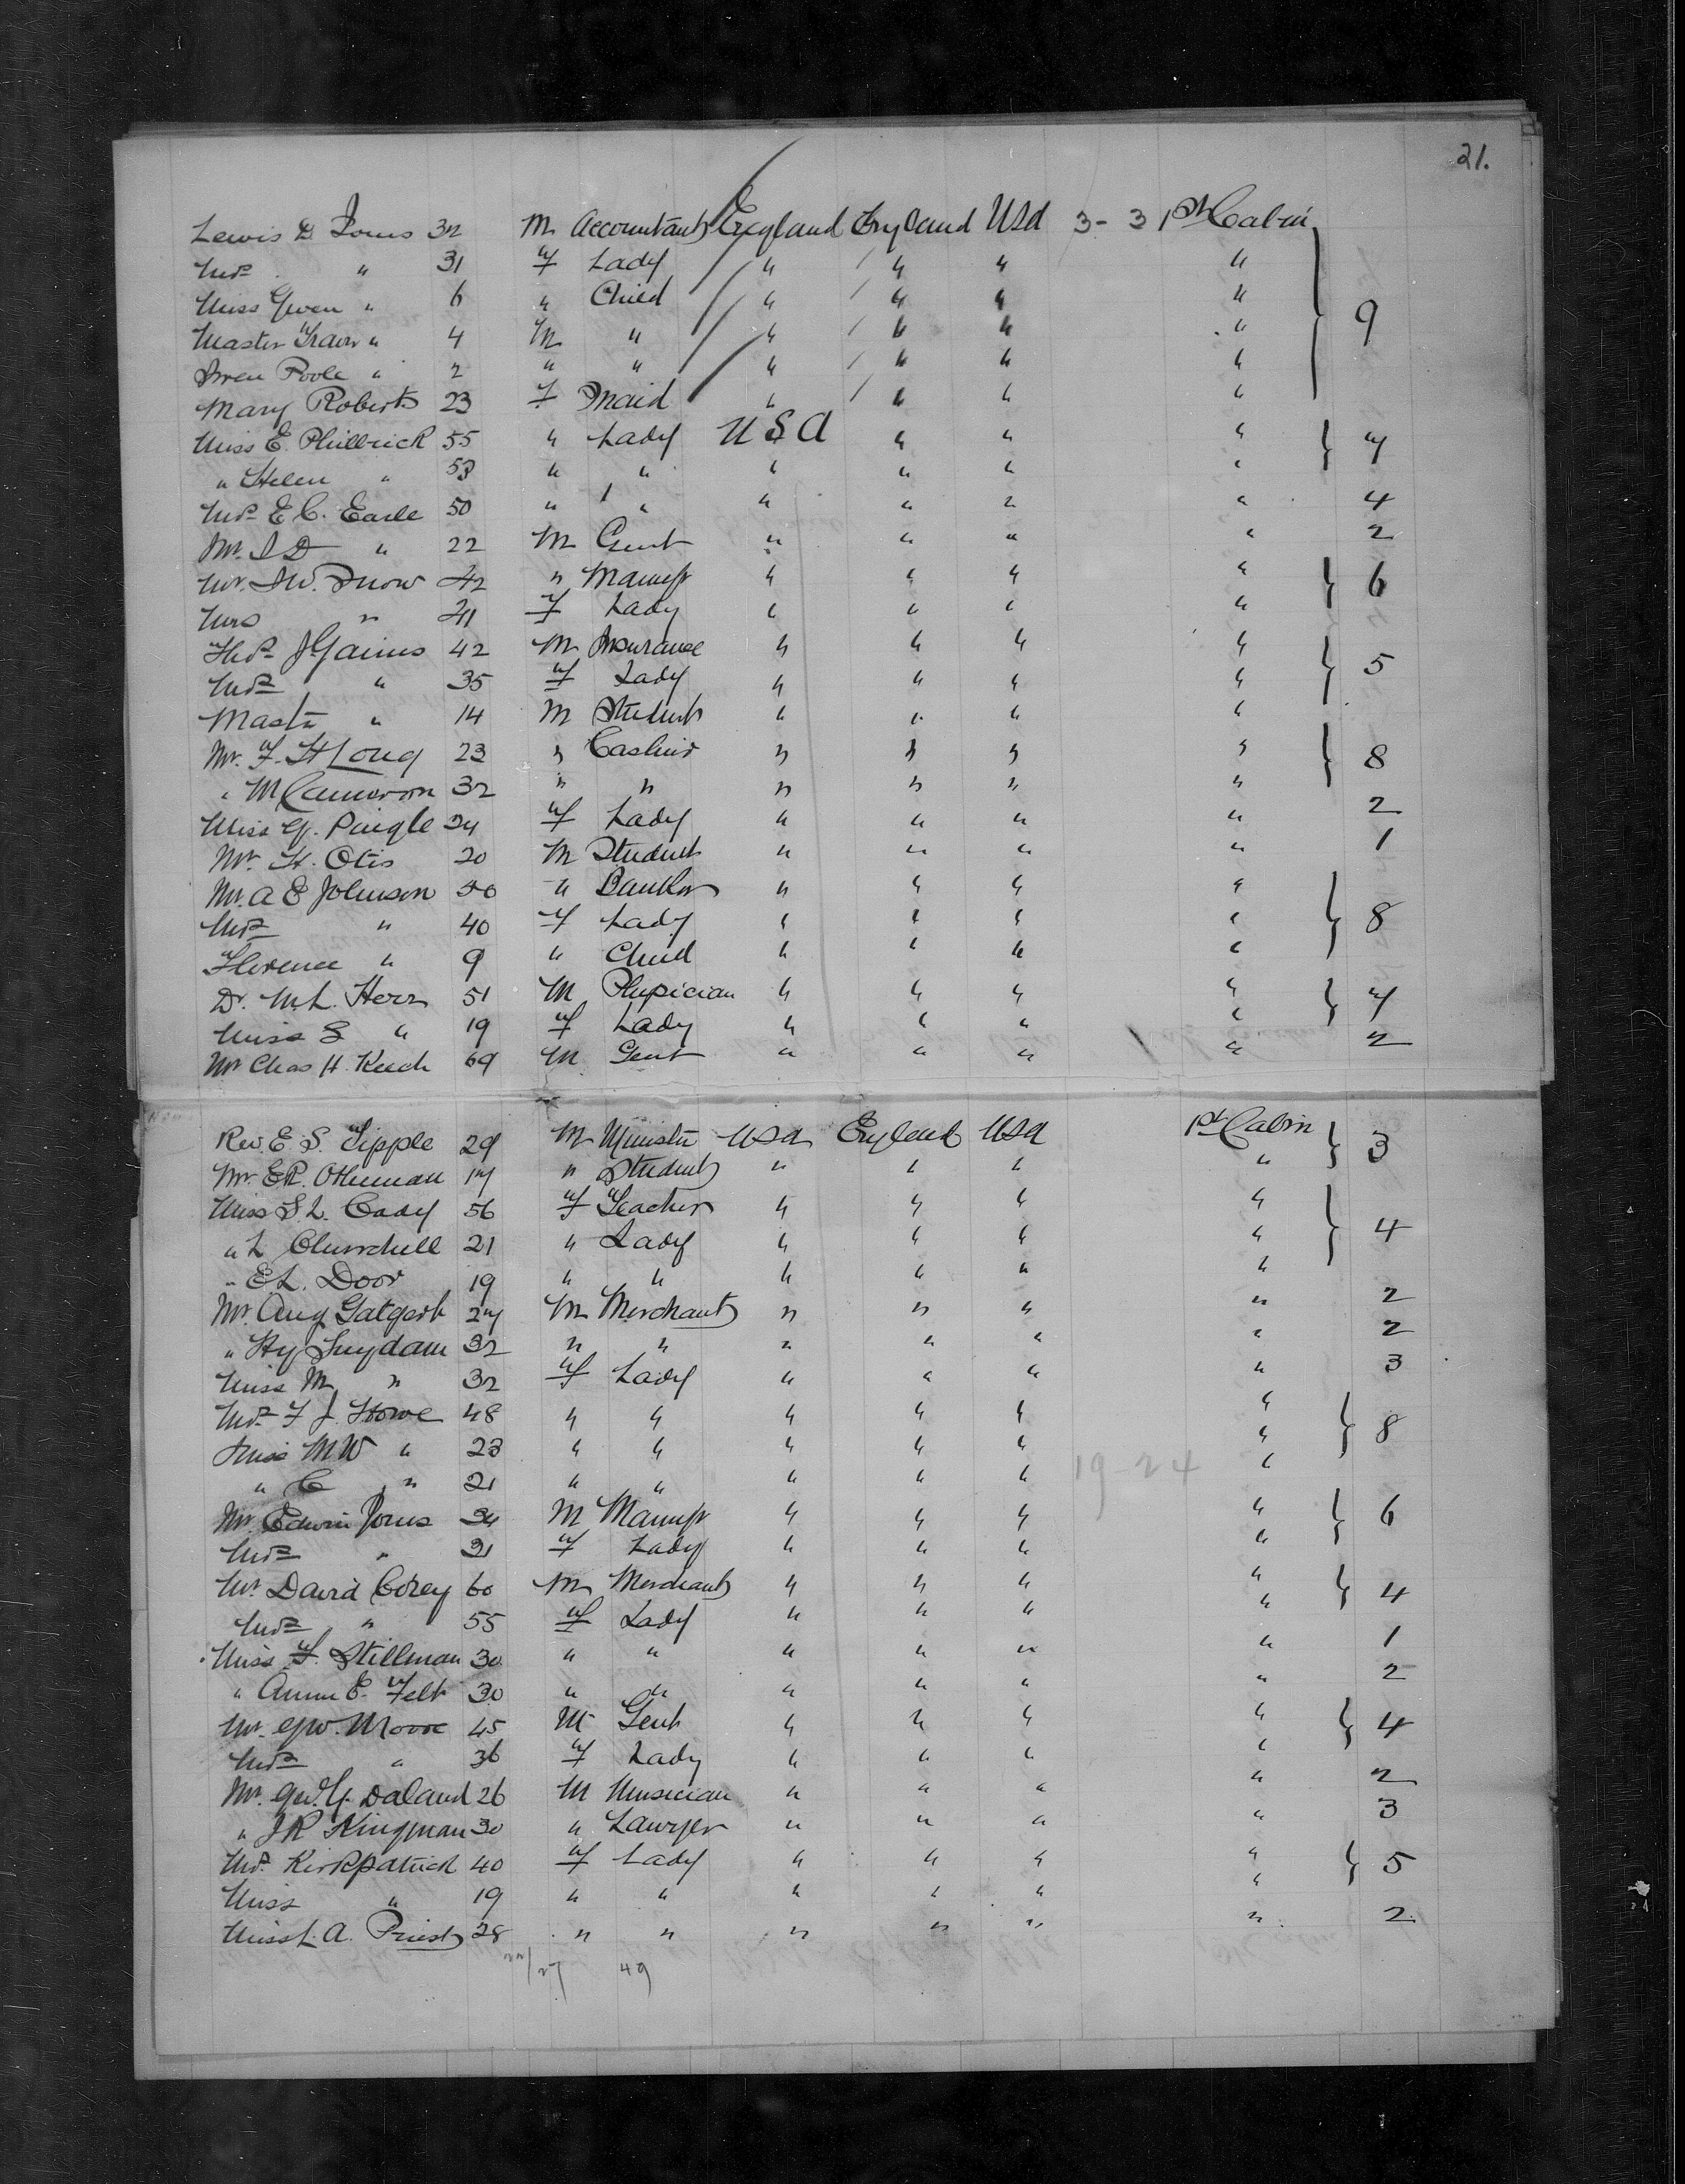 21.
Lewis D Jones 32 M Accountant England England USA 3-3 1st Cabin
Mrs " 31 F Lady " " " "
Miss Gwen " 6 " Child " " " " 9
Master " 4 M " " " " "
Poole " 2 " " " " " "
Mary Roberts 23 F Maid " " " "
Miss E. Philbrick 55 " Lady USA " " " 7
" Helen " 53 " " " " " "
Mrs E C. Earle 50 " " " " " " 4
Mr. I D " 22 M Gent " " " " 2
Mr. I W. Snow 42 " Manufr " " " " 6
Mrs " 41 F Lady " " " "
J Gaines 42 M Insurance " " " " 5
Mrs " 35 F Lady " " " "
Master " 14 M Student " " " "
Mr. F. H Long 23 " Cashier " " " " 8
" M Cameron 32 " " " " " "
Miss G. Pingle 24 F Lady " " " " 2
Mr. H. Otis 20 M Student " " " " 1
Mr. A E Johnson 50 " Banker " " " " 8
Mrs " 40 F Lady " " " "
Florence " 9 " Child " " " "
Dr. M. L. Herr 51 M Physician " " " " 7
Miss S " 19 F Lady " " " "
Mr Chas H. Keech 69 M Gent " " " " 2
Rev. E. S. Tipple 29 M Minister USA England USA 1st Cabin 3
Mr. E R. Otheman 17 " Student " " " "
Miss S. L. Cady 56 F Teacher " " " " 4
" L Churchill 21 " Lady " " " "
" E L. Door 19 " " " " " "
Mr. Aug Gatgert 27 M Merchant " " " " 2
" Hy Suydam 32 " " " " " " 2
Miss M " 32 F Lady " " " " 3
Mrs F J. Howe 48 " " " " " " 8
Miss M W " 23 " " " " " "
" C " 21 " " " " " 19-24 "
Mr. Edwin Jones 34 M Manufr " " " " 6
Mrs " 31 F Lady " " " "
Mr. David Corey 60 M Merchant " " " " 4
Mrs " 55 F Lady " " " "
Miss F. Stillman 30 " " " " " " 1
" Annie E. Felt 30 " " " " " " 2
Mr. G W. Moore 45 M Gent " " " " 4
Mrs " 36 F Lady " " " "
Mr. Geo. Y. Daland 26 M Musician " " " " 2
" J R Kingman 30 " Lawyer " " " " 3
Mrs. Kirkpatrick 40 F Lady " " " " 5
Miss " 19 " " " " " "
Miss L. A. Priest 28 " " " " " " 2
22/27 49